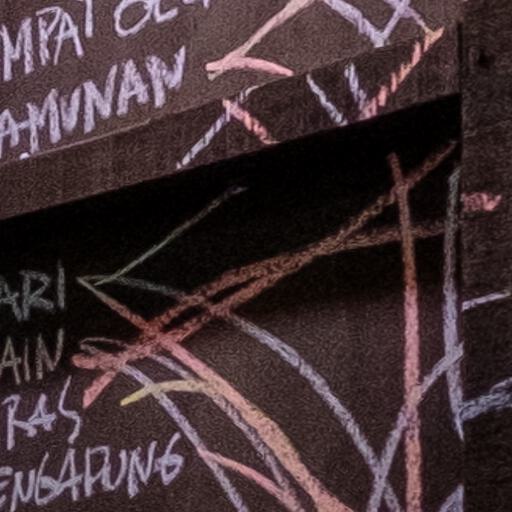 MPAT
AMUNAN
ARI
AIN
RAS
ENGAPUNG